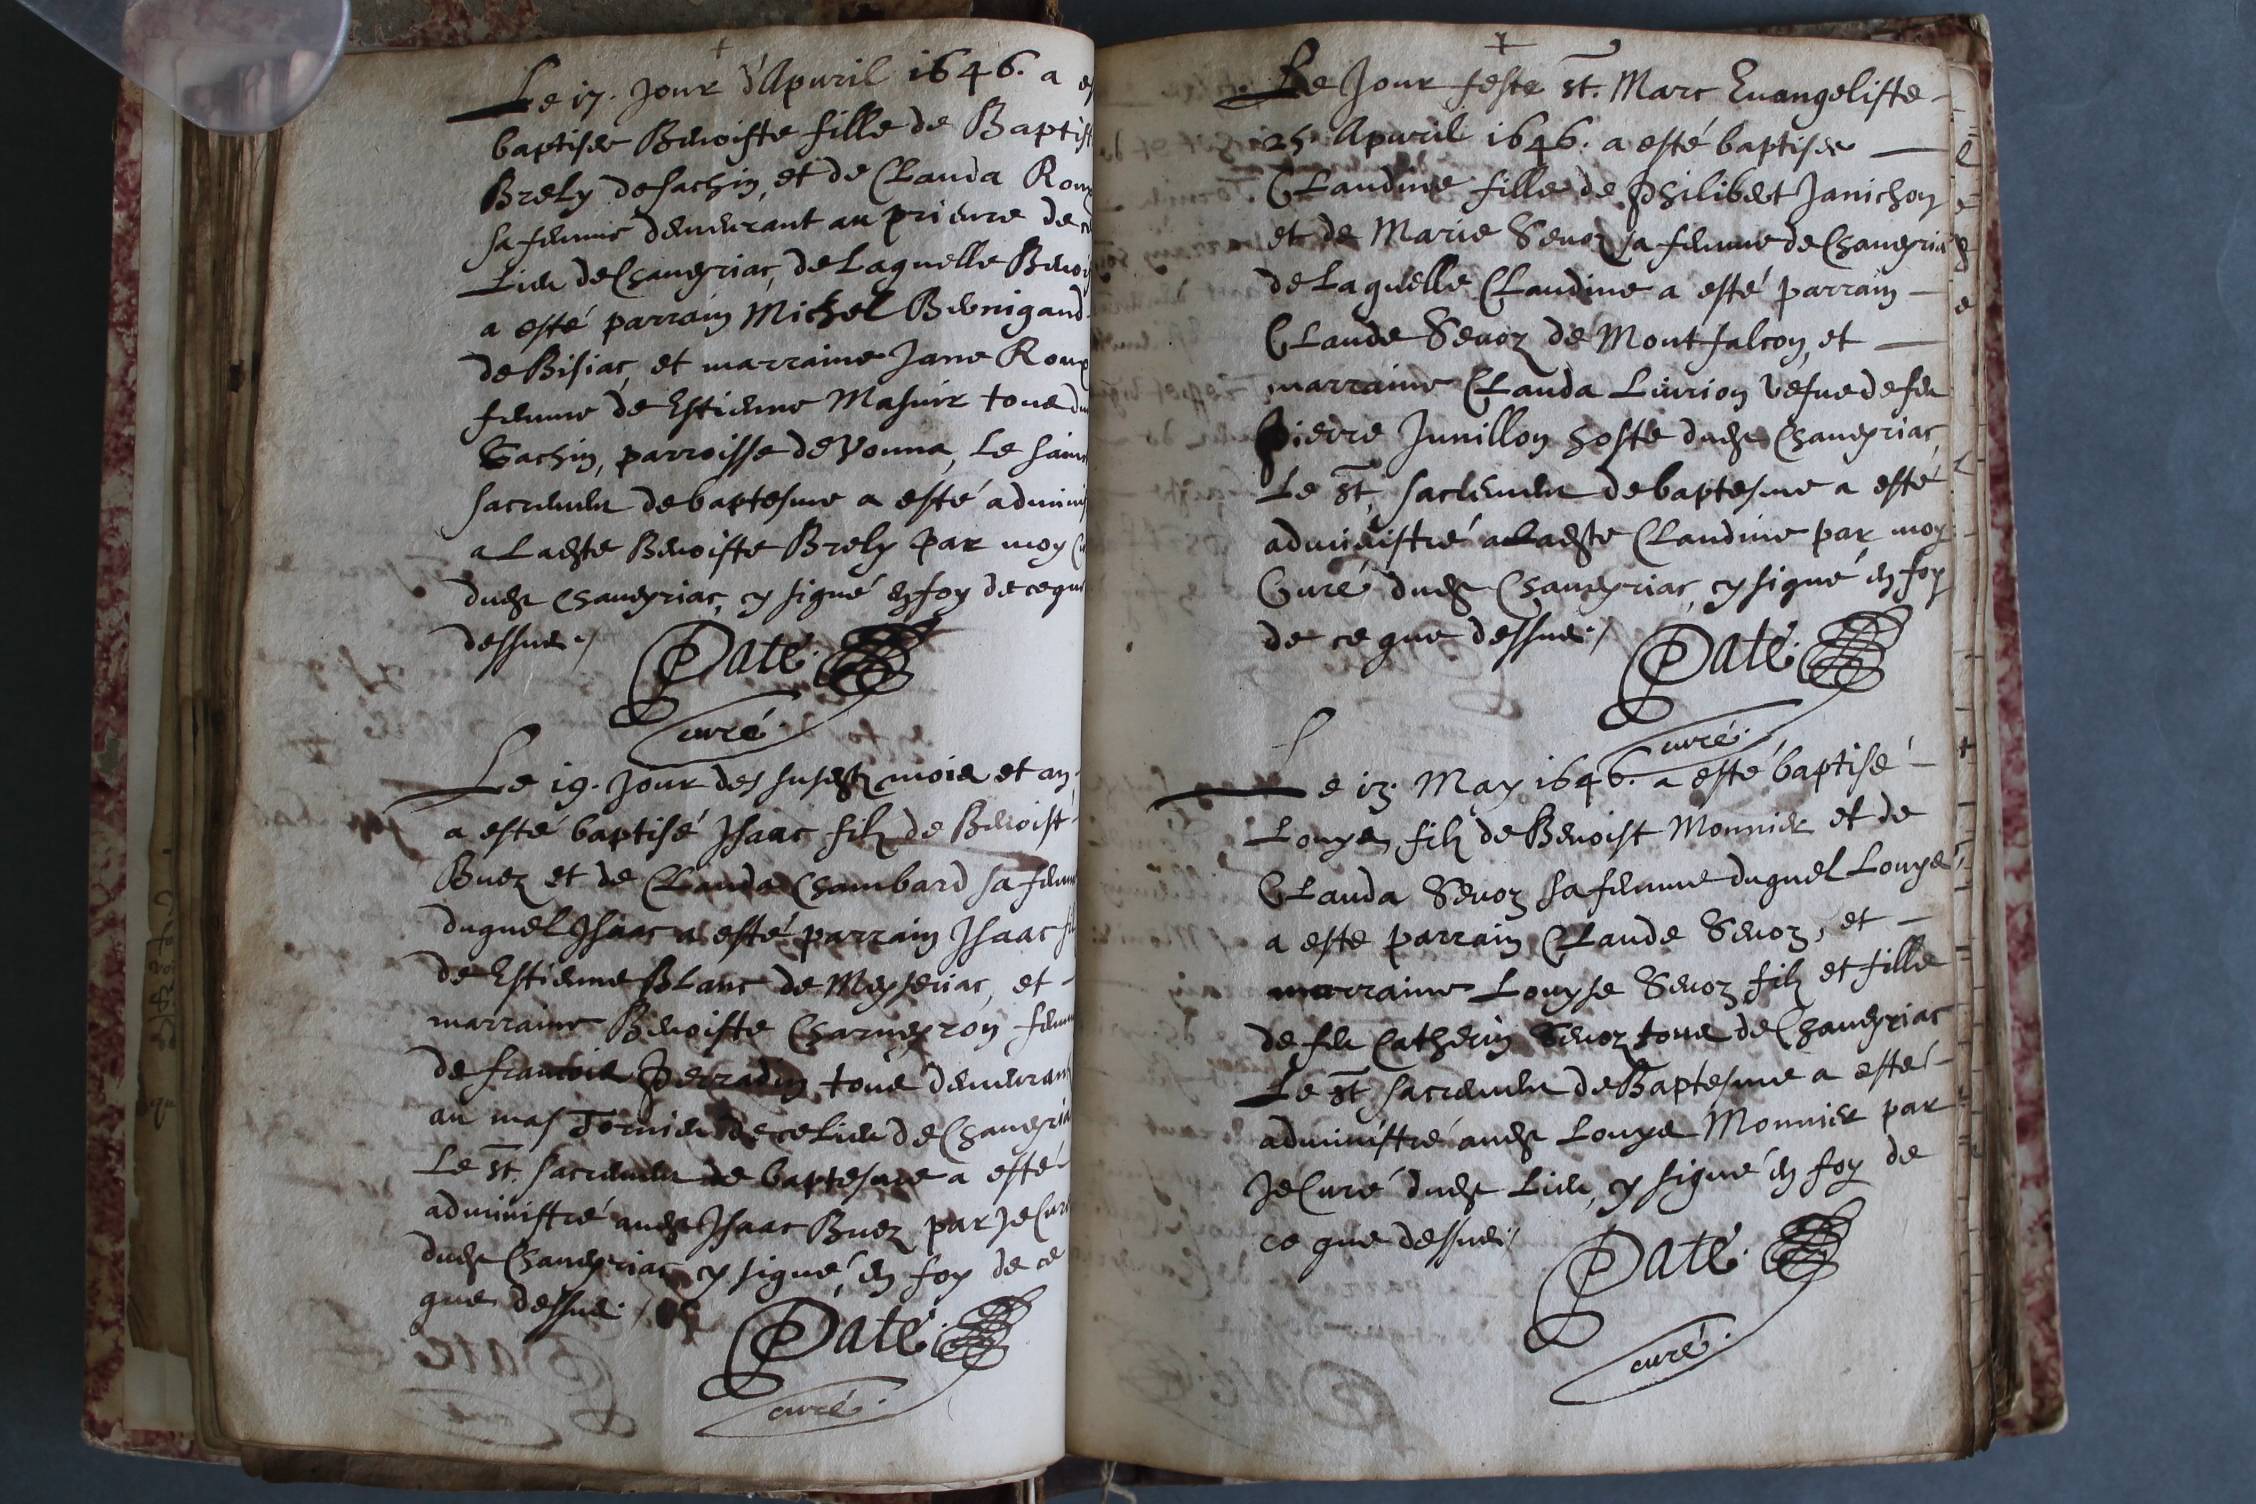 Le 17. Jour d'Apuril 1646. a es
baptisee Benoiste fille de Baptist
Brely de sachin, et de Clauda Roux
sa femme demeurant au prieure de ce
Lieu de Chaueyriac, de Laquelle Benois
a esté parrain Michel Benigaud
de Bisiac, et marraine Jane Roux
femme de Estienne Masuir tous du
Sachin, parroisse de Vonna, Le sainct
sacrement de baptesme a esté adminis
a Ladte Benoiste Brely par moy Cu
dudt Chaueyriac, cy signé en foy de ce que
dessus./
Paté.
curé.
Le 19. Jour des susdtz mois et an,
a esté baptisé Isaac filz de Benoist
Buez et de Clauda Chambard sa femme
duquel Isaac a esté parrain Isaac fil
de Estienne Blanc de Meyseriac, et
marraine Benoiste Charneyron femme
de francois Perradin tous demeurant
au mas Tornier de ce Lieu de Chaueyria
Le St. sacrement de baptesme a esté
administré audt Isaac Buez par Je Curé
dudt Chaueyriac cy signé, en foy de ce
que dessus./
Paté.
curé.
Le Jour feste St. Marc Euangeliste
25. Apuril 1646. a esté baptisee
Claudine fille de Philibert Janichon
et de Marie Seuoz sa femme de Chaueyria
de Laquelle Claudine a esté parrain
Claude Seuoz de Montfalcon, et
marraine Clauda Liurion vefue de feu
Pierre Junillon hoste dudt Chaueyriac,
Le St. sacrement de baptesme a esté
administré a Ladte Claudine par moy
Curé dudt Chaueyriac, cy signé en foy
de ce que dessus./
Paté.
curé.
Le 13. May 1646. a esté baptisé
Louys, filz de Benoist Monnier et de
Clauda Seuoz sa femme duquel Louys
a este parrain Claude Seuoz, et
marraine Louyse Seuoz filz et fille
de feu Catherin Seuoz tous de Chaueyriac
Le St sacrement de Baptesme a esté
administré audt Louys Monnier par
Je Curé dudt Lieu, cy signé en foy de
ce que dessus./
Paté.
curé.